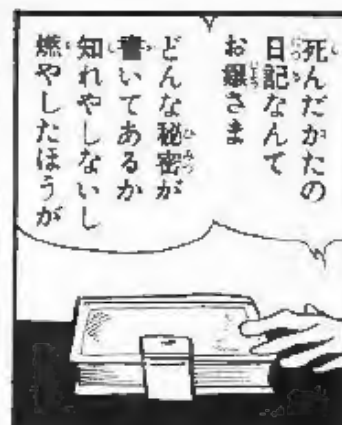 死んだかたの
日記なんて
お嬢さま
どんな秘密が
書いてあるか
知れやしないし
燃やしたほうが